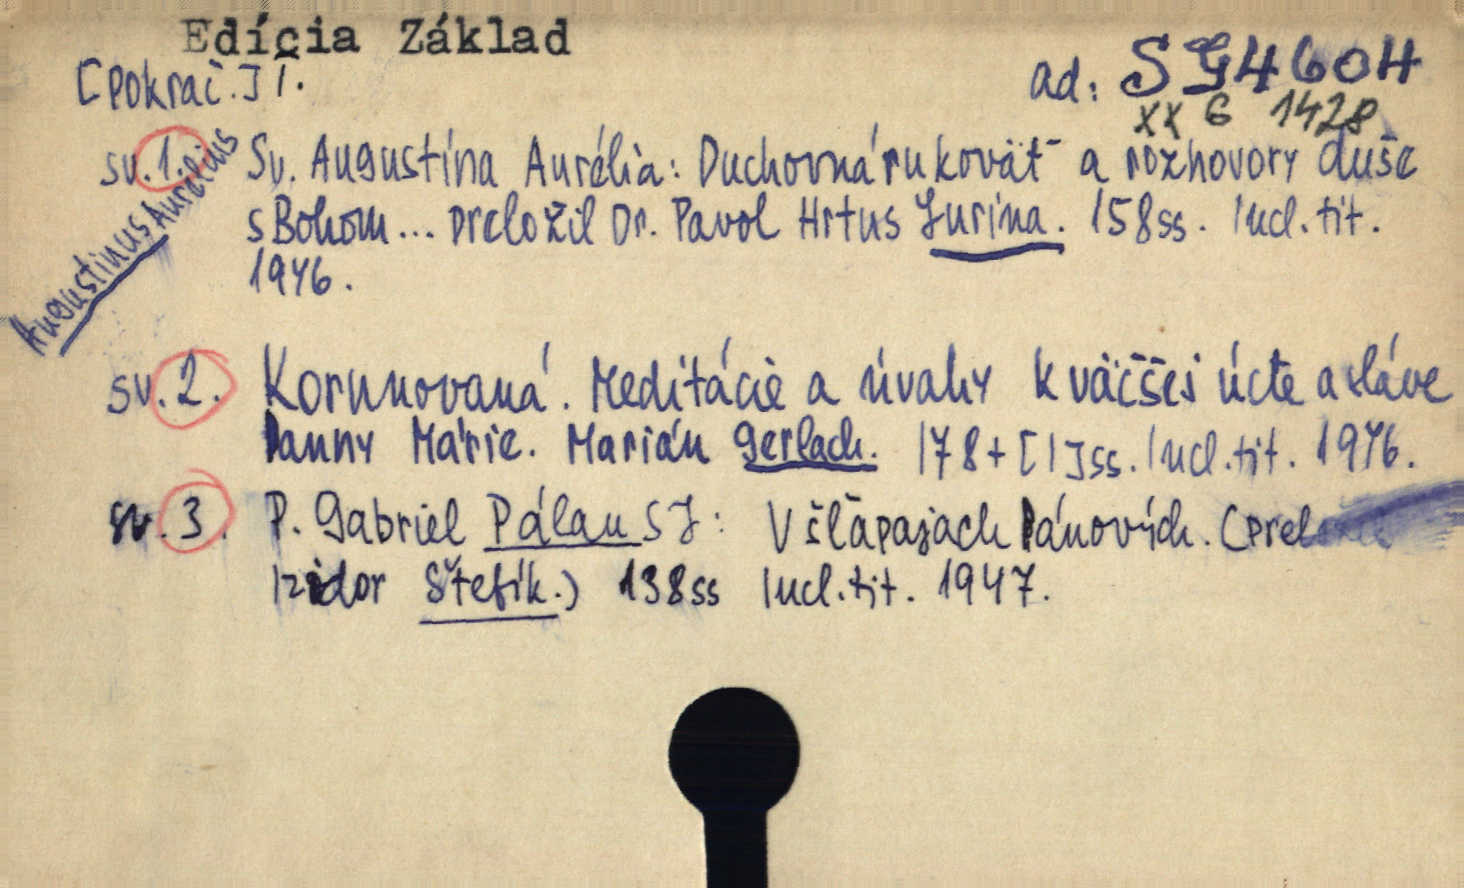 Edícia Základ
[Pokrač.] I.
ad: SG4604
XX G 1428
sv. 1. Sv. Augustína Aurélia: Duchovná rukoväť a rozhovory duše
s Bohom... preložil Dr. Pavol Hrtus Jurina. 158ss. Incl. tit.
1946.
Augustinus Aurelius
sv. 2. Korunovaná. Meditácie a úvahy k väčšej úcte a sláve
Panny Márie. Marián Gerlach. 178+[1]ss. Incl. tit. 1946.
sv. 3. P. Gabriel Pálau SJ: V šľapajach Pánových. (Prel
Izidor Štefík.) 138ss Incl. tit. 1947.